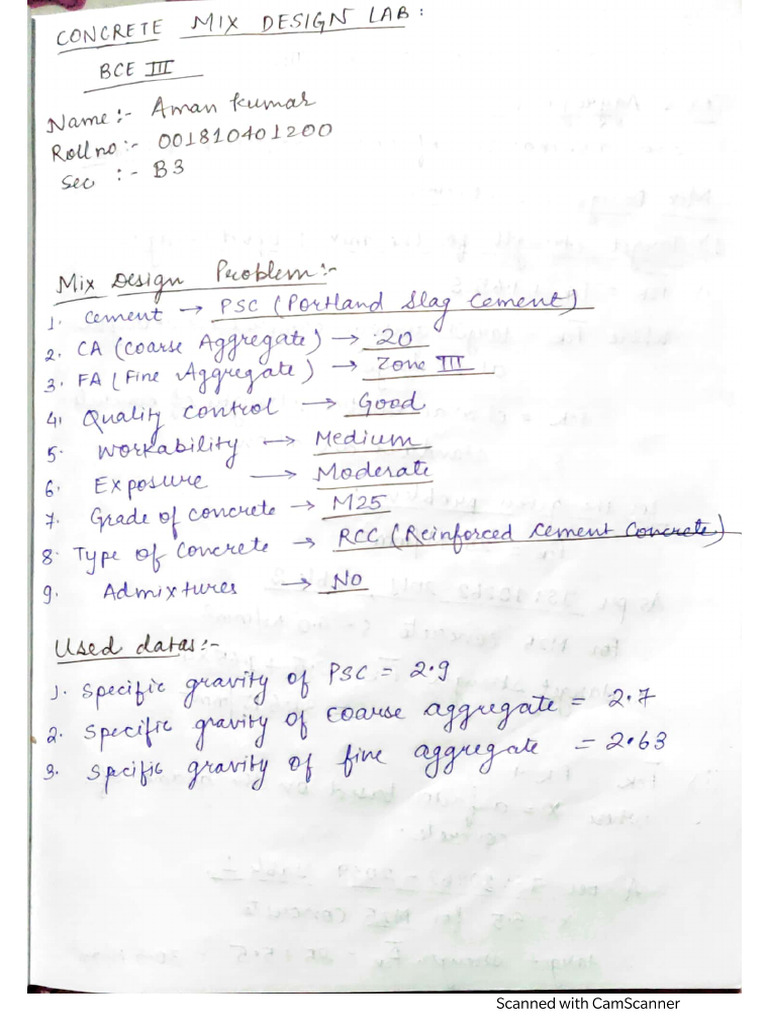 CONCRETE MIX DESIGN LAB:
BCE III
Name:- Aman Kumar
Roll no:- 001810401200
Sec :- B3
Mix Design Problem:-
1. Cement → PSC (Portland Slag Cement)
2. CA (Coarse Aggregate) → 20
3. FA (Fine Aggregate) → Zone III
4. Quality control → Good
5. Workability → Medium
6. Exposure → Moderate
7. Grade of concrete → M25
8. Type of Concrete → RCC (Reinforced Cement Concrete)
9. Admixtures → No
Used datas:-
1. Specific gravity of PSC = 2.9
2. Specific gravity of coarse aggregate = 2.7
3. Spcific gravity of fine aggregate = 2.63
Scanned with CamScanner